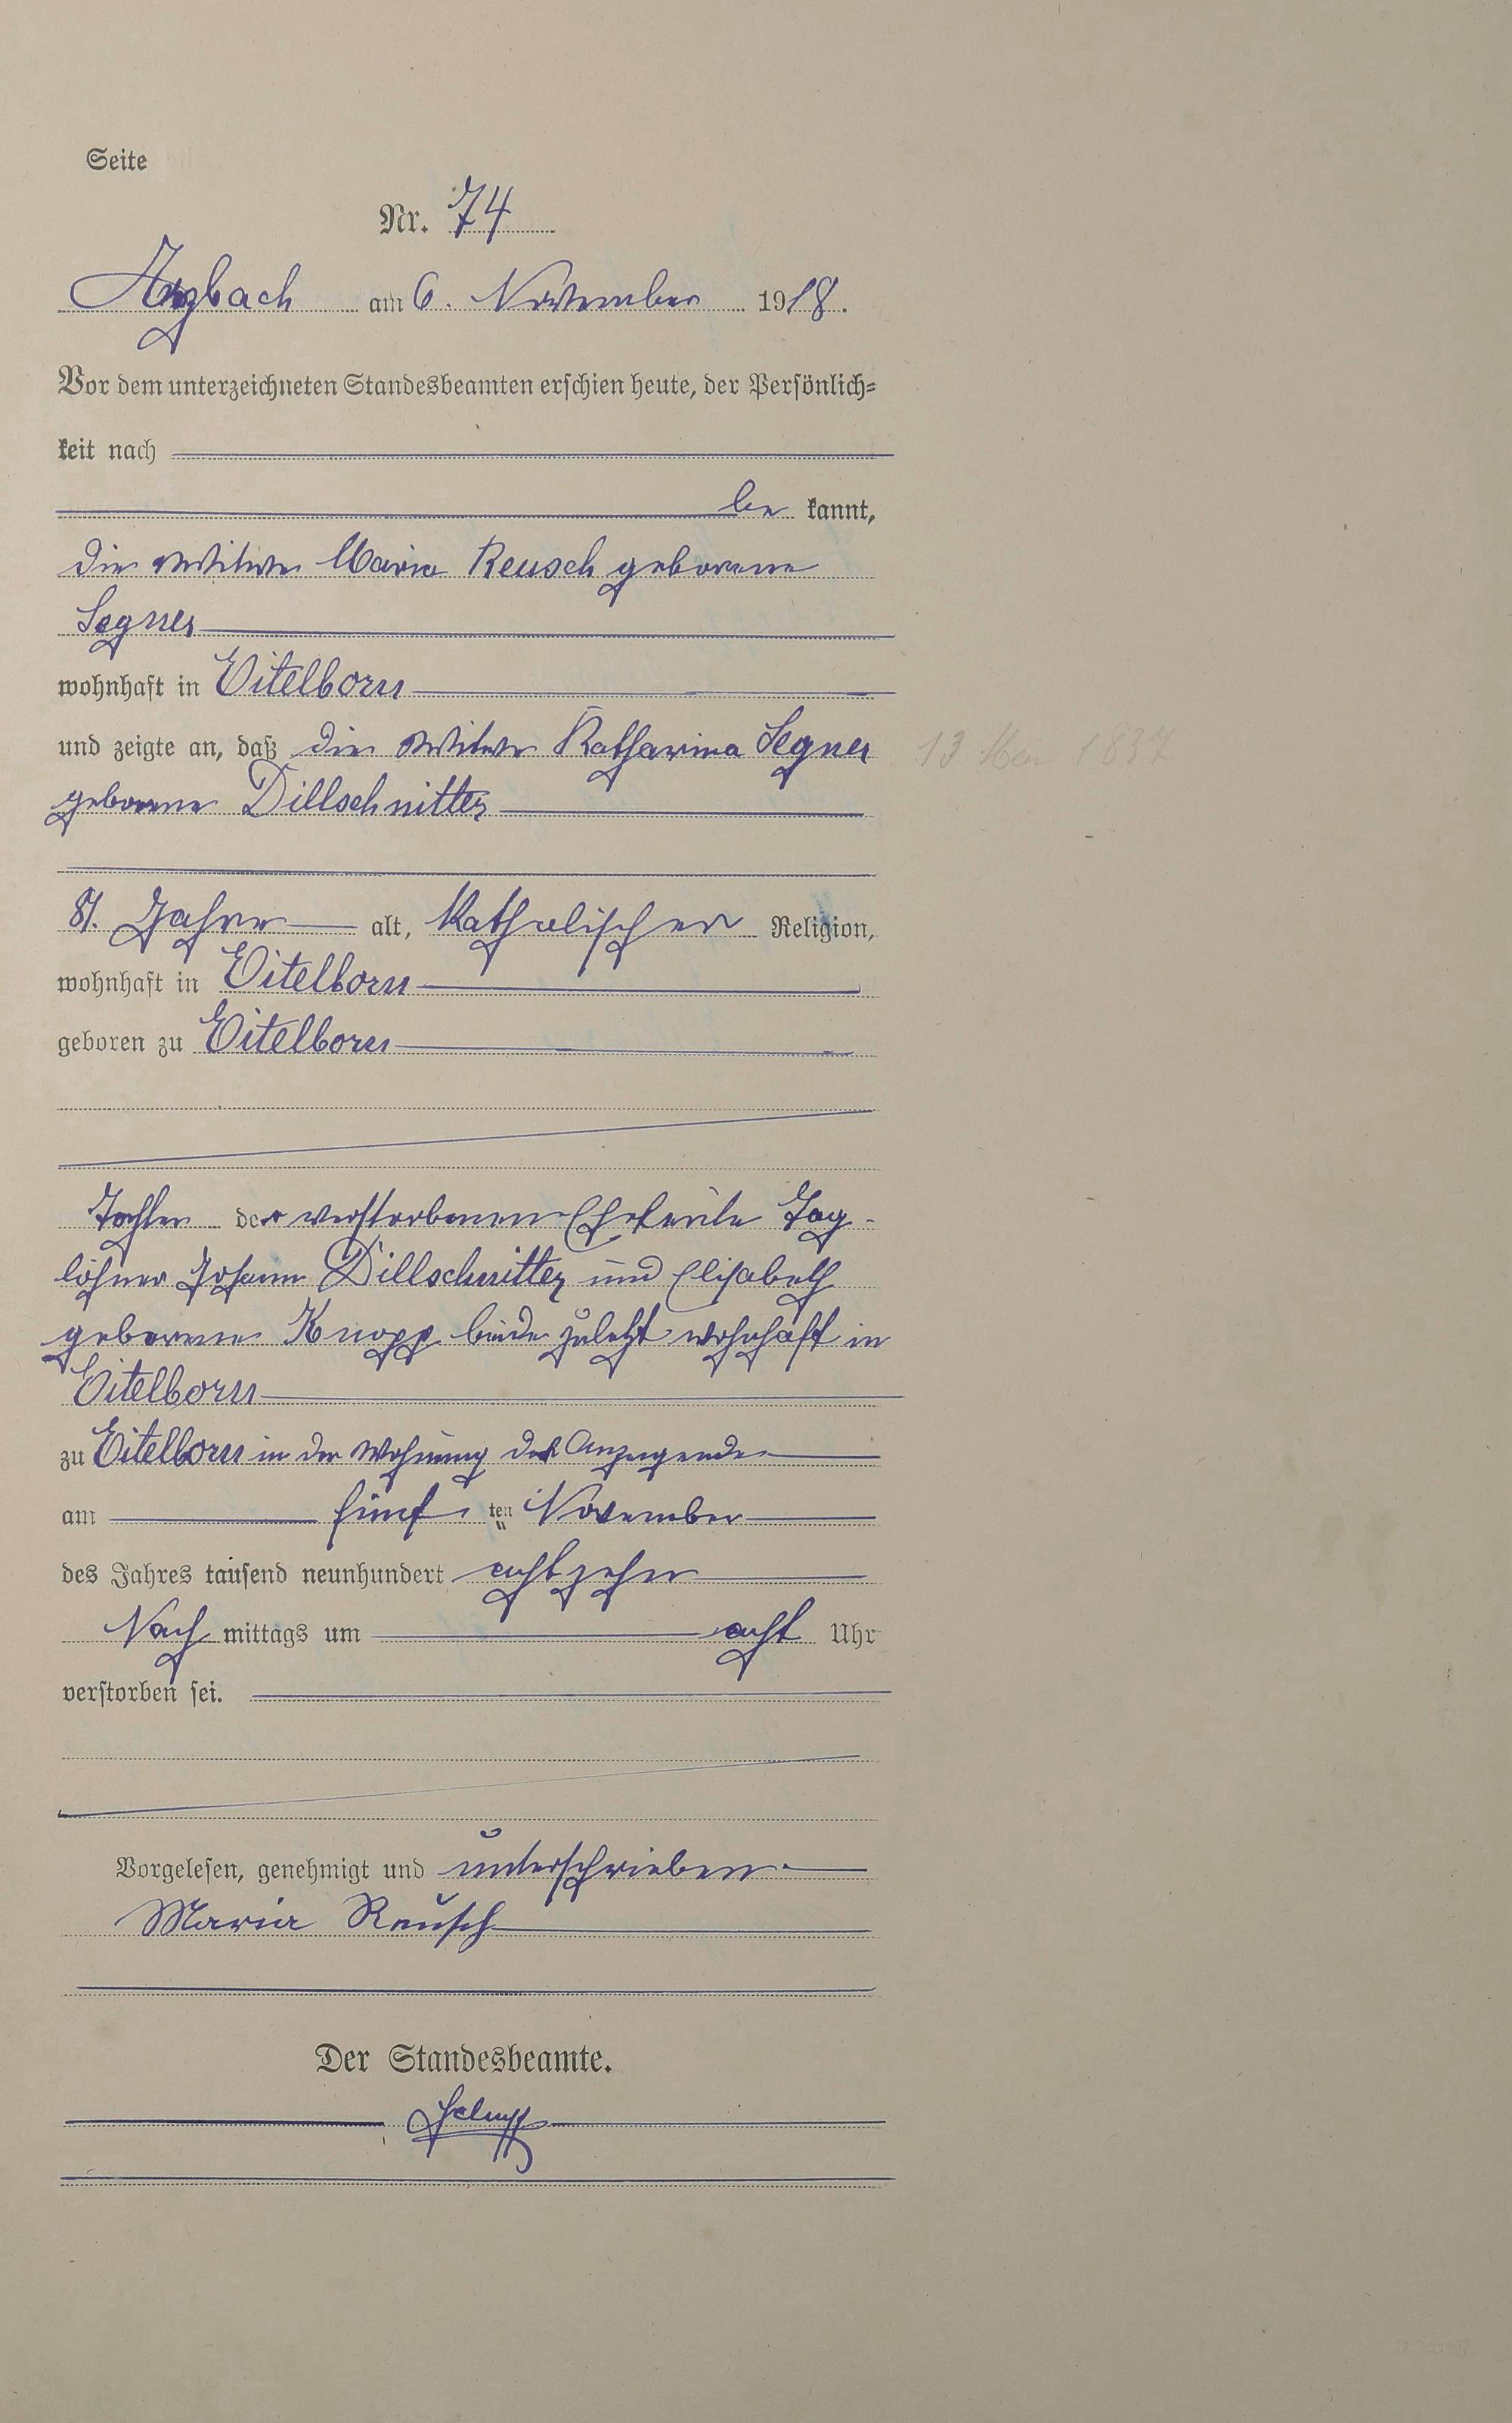 Seite
Nr. 74
Arzbach am 6. November 1918.
Vor dem unterzeichneten Standesbeamten erschien heute, der Persönlich=
keit nach
be kannt,
die Witwe Maria Reusch geborene
Segner
wohnhaft in Eitelborn
und zeigte an, daß die Witwe Katharina Segner
13 1837
geborene Dillschnitter
81. Jahre alt, Katholischer Religion,
wohnhaft in Eitelborn
geboren zu Eitelborn
Tochter der verstorbenen Eheleute Tag-
löhner Johann Dillschnitter und Elisabeth
geborene Knopp beide zuletzt wohnhaft in
Eitelborn
zu Eitelborn in der Wohnung der Anzeigenden
am fünf ten November
des Jahres tausend neunhundert achtzehn
Nach mittags um acht Uhr
verstorben sei.
Vorgelesen, genehmigt und unterschrieben
Maria Reusch
Der Standesbeamte.